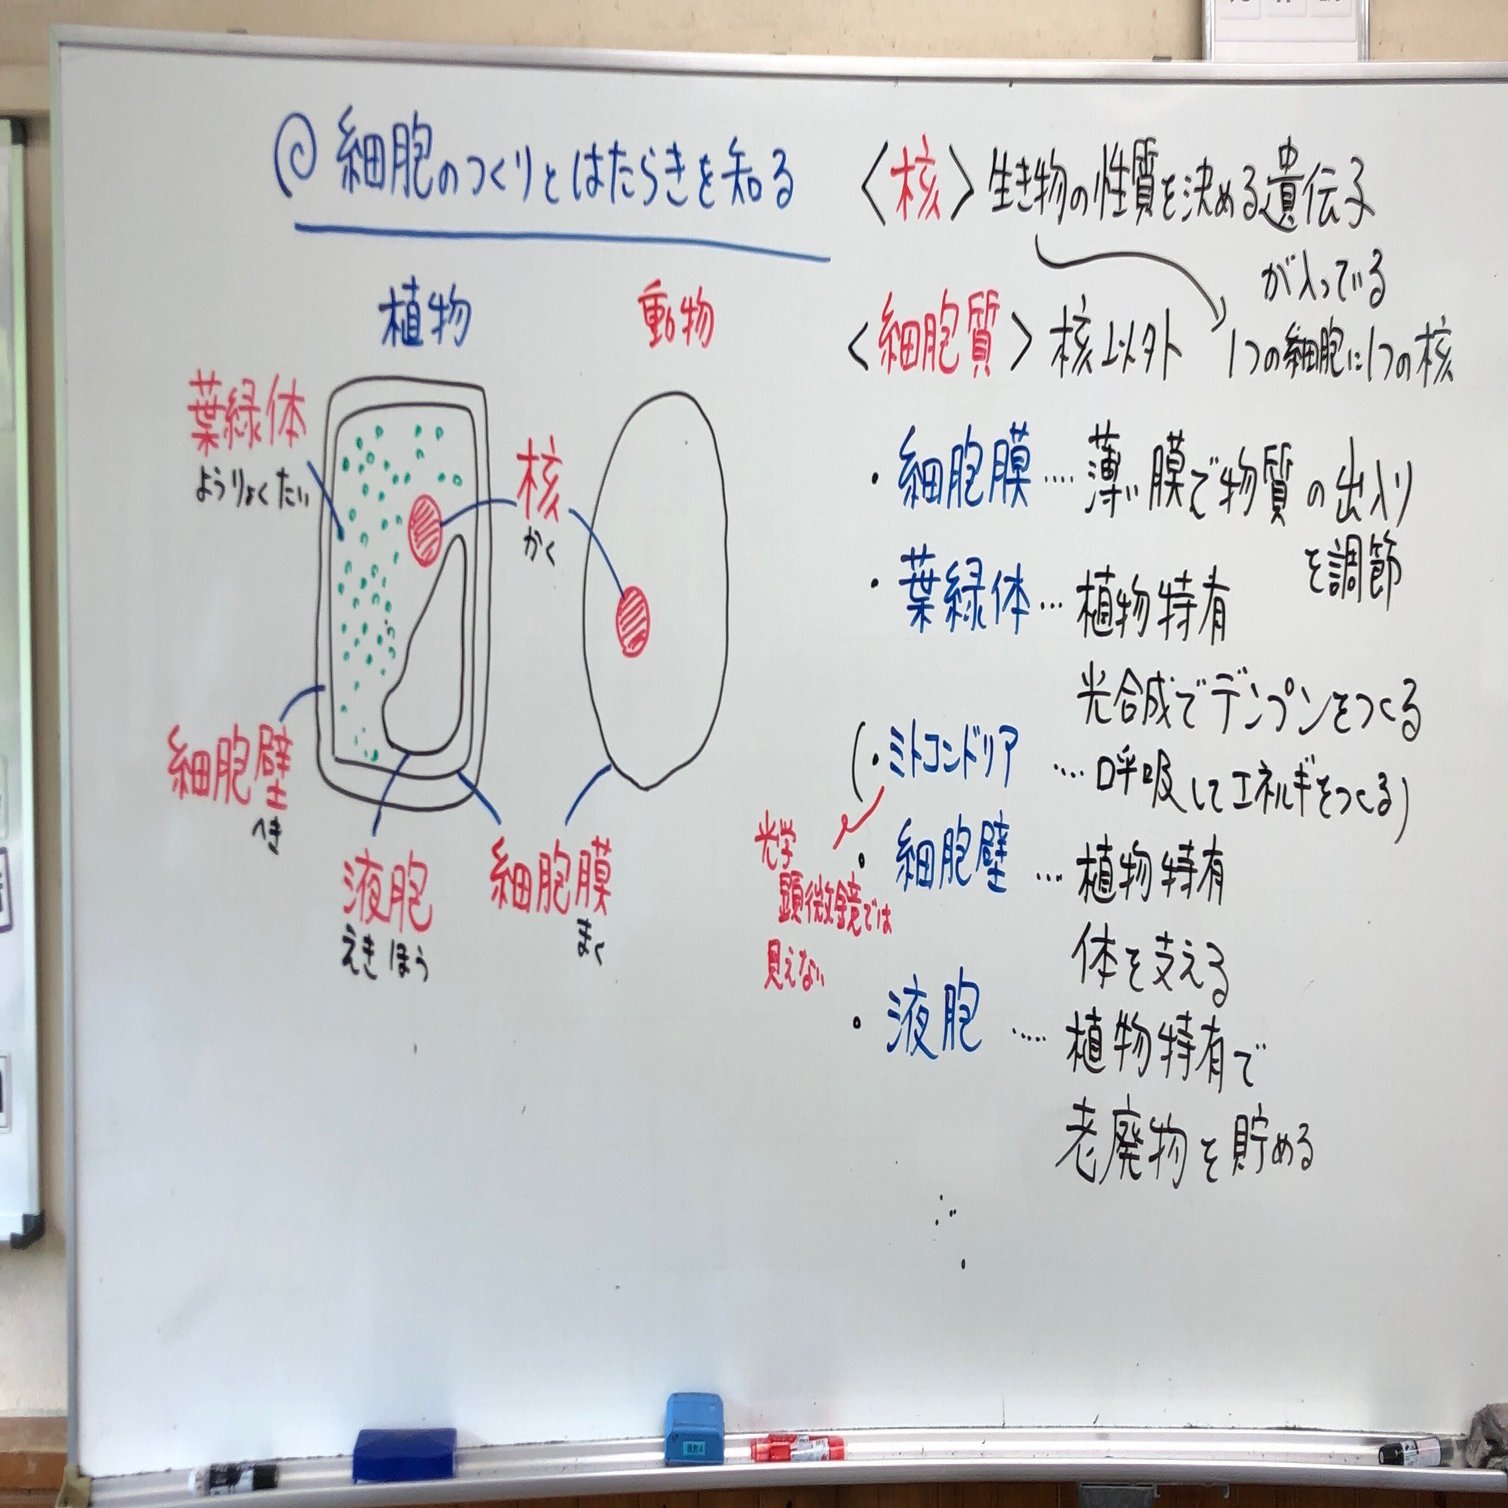 細胞のつくりとはたらきを知る
植物
動物
葉緑体
ようりょくたい
核
かく
細胞壁
へき
液胞
えきほう
細胞膜
まく
〈核〉生き物の性質を決める遺伝子
が入っている
1つの細胞に1つの核
〈細胞質〉核以外
・細胞膜….薄い膜で物質の出入り
を調節
・葉緑体…植物特有
光合成でデンプンをつくる
(・ミトコンドリア….呼吸してエネルギをつくる)
光学
顕微鏡では
見えない
・細胞壁…植物特有
体を支える
・液胞…..植物特有で
老廃物を貯める